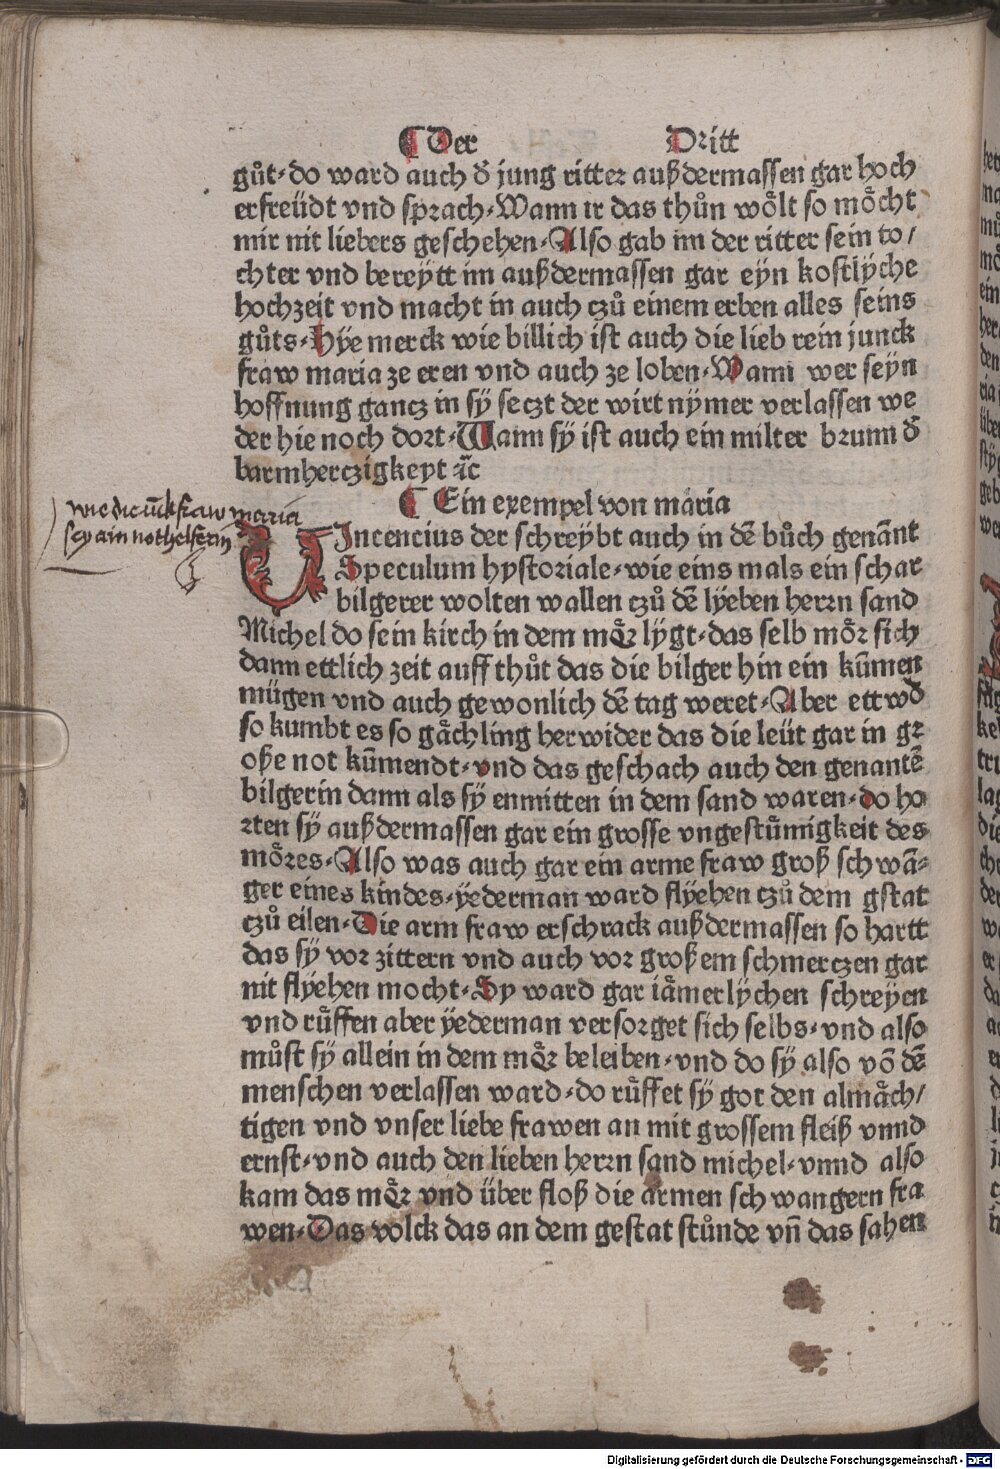 ¶ Der Dritt
gůt⸗do ward auch d̄ jung ritter außdermassen gar hoch
erfreüdt vnd sprach⸗Wann ir das thůn wȯͤlt so mȯͤcht
mir nit liebers geschehen⸗Also gab im der ritter sein to/
chter vnd bereÿtt im außdermassen gar eÿn kostlÿche
hochzeit vnd macht in auch czů einem erben alles seins
gůts⸗Hÿe merck wie billich ist auch die lieb rein junck
fraw maria ze eren vnd auch ze loben⸗Wann wer seÿn
hoffnung gancz in sÿ seczt der wirt nÿmer verlassen we
der hie noch dort⸗Wann sÿ ist auch ein milter brunn d̄
barmherczigkeyt ꝛc̄
¶ Ein exempel von maria
wie die iūckfraw maria
sey ain nothelferin
VIncencius der schreÿbt auch in dē bůch genānt
Speculum hystoriale⸗wie eins mals ein schar
bilgerer wolten wallen czů dē lÿeben herrn sand
Michel do sein kirch in dem mȯͤr lÿgt⸗das selb mȯͤr sich
dann ettlich zeit auff thůt das die bilger hin ein kūmen
mügen vnd auch gewonlich dē tag weret⸗Aber ettwd̄
so kumbt es so gaͤchling herwider das die leüt gar in gr
oße not kūmendt⸗vnd das geschach auch den genantē
bilgerin dann als sÿ enmitten in dem sand waren⸗do ho
rten sÿ außdermassen gar ein grosse vngestümigkeit des
mȯͤres⸗Also was auch gar ein arme fraw groß schwā⸗
ger eines kindes⸗ÿederman ward flÿehen czů dem gstat
czů eilen⸗Die arm fraw erschrack außdermassen so hartt
das sÿ vor zittern vnd auch vor großem schmerczen gar
nit flÿehen mocht⸗Sy ward gar iaͤmerlÿchen schreÿen
vnd rüffen aber ÿederman versorget sich selbs⸗vnd also
můst sÿ allein in dem mȯͤr beleiben⸗vnd do sÿ also vō dē
menschen verlassen ward⸗do rüffet sÿ got den almaͤch/
tigen vnd vnser liebe frawen an mit grossem fleiß vnnd
ernst⸗vnd auch den lieben herrn sand michel⸗vnnd also
kam das mȯͤr vnd über floß die armen schwangern fra
wen⸗Das volck das an dem gestat stůnde vn̄ das sahen
Digitalisierung gefördert durch die Deutsche Forschungsgemeinschaft - DFG